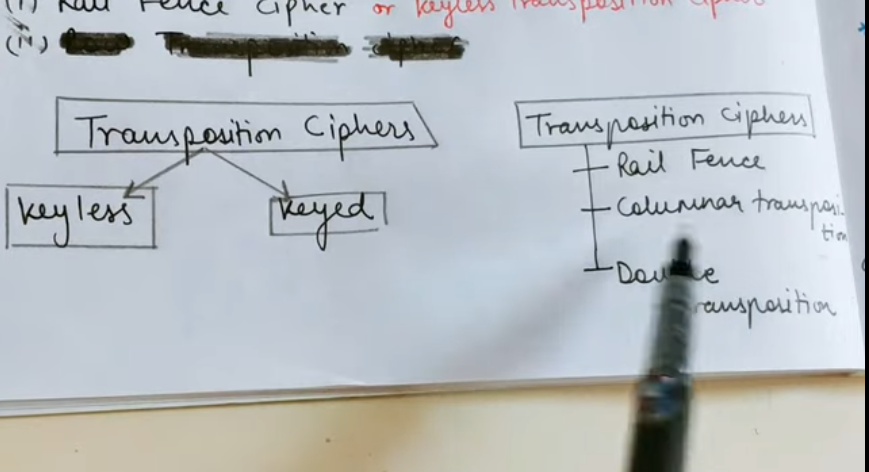 (i) Rail Fence Cipher or Keyless Transposition Cipher
(ii)
Transposition Ciphers
Keyless
Keyed
Transposition Ciphers
Rail Fence
Columnar transposi-
tion
Double
Transposition